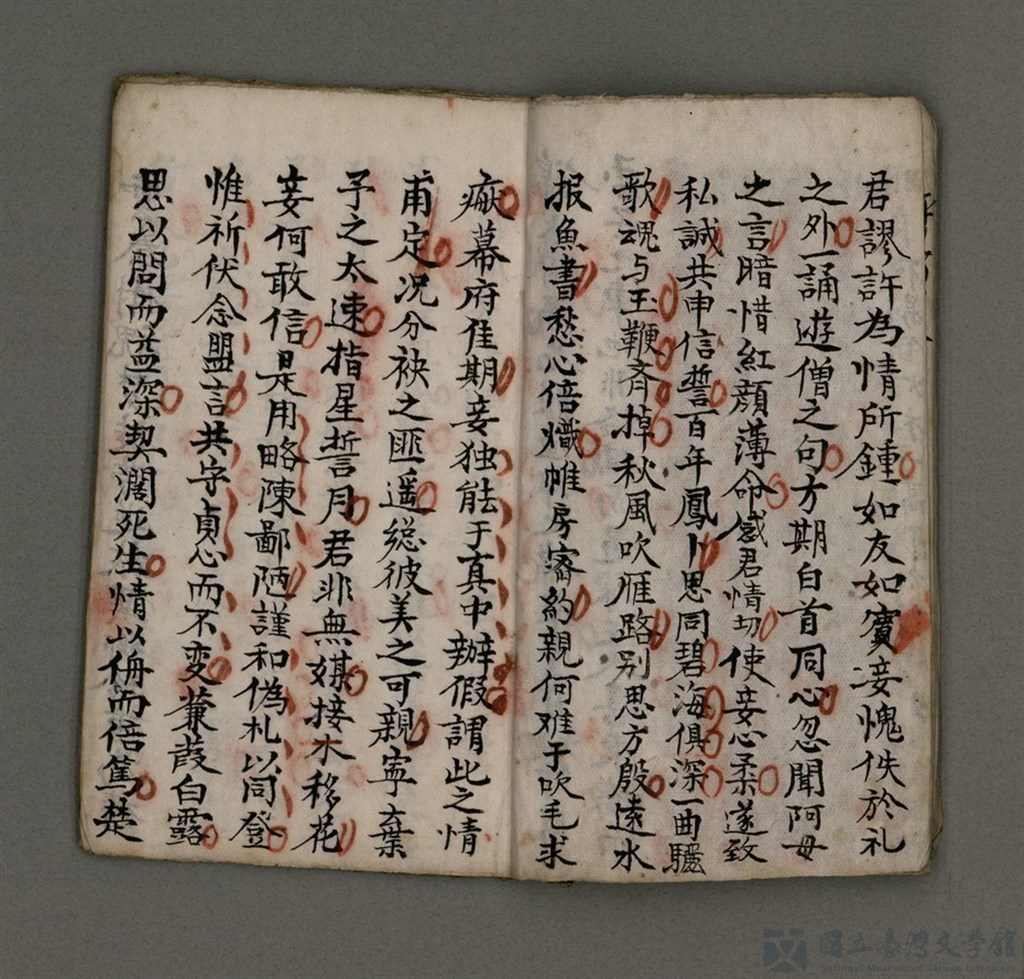 君謬許為情所鍾如友如賓妾愧佚於礼
之外一誦遊僧之句方期白首同心忽聞阿母
之言暗惜紅顏薄命感君情切使妾心柔遂致
私誠共申信誓百年鳳卜思同碧海俱深一曲驪
歌魂与玉鞭斉掉秋風吹雁路别思方殷遠水
报魚書愁心倍熾帷房密約親何难于吹毛求
瘢幕府佳期妾独能于真中辦假謂此之情
甫定况分袂之匪遥縂彼美之可親寧棄
子之太速指星誓月君非無媒接木移花
妾何敢信是用略陳鄙陋謹和偽札以同登
惟祈伏念盟言共守貞心而不变蒹葭白露
思以閤而益深契濶死生情以侮而倍篤楚
國立臺灣文學館